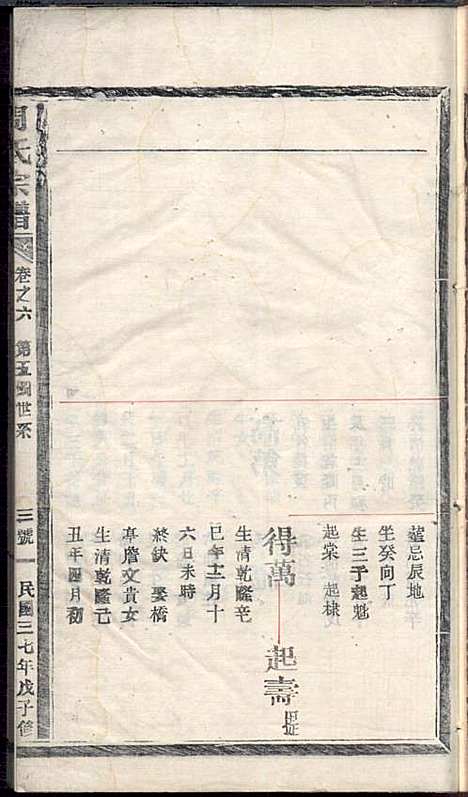 塟忌辰地
坐癸向丁
生三子起魁
起棠 起棣
得萬
起壽
生清乾隆辛
巳年十二月十
六日未時
終缺 娶橋
亭詹文貴女
生清乾隆己
丑年四月初
周氏宗譜
卷之六 第五圖世系
三號
民國三七年戊子修